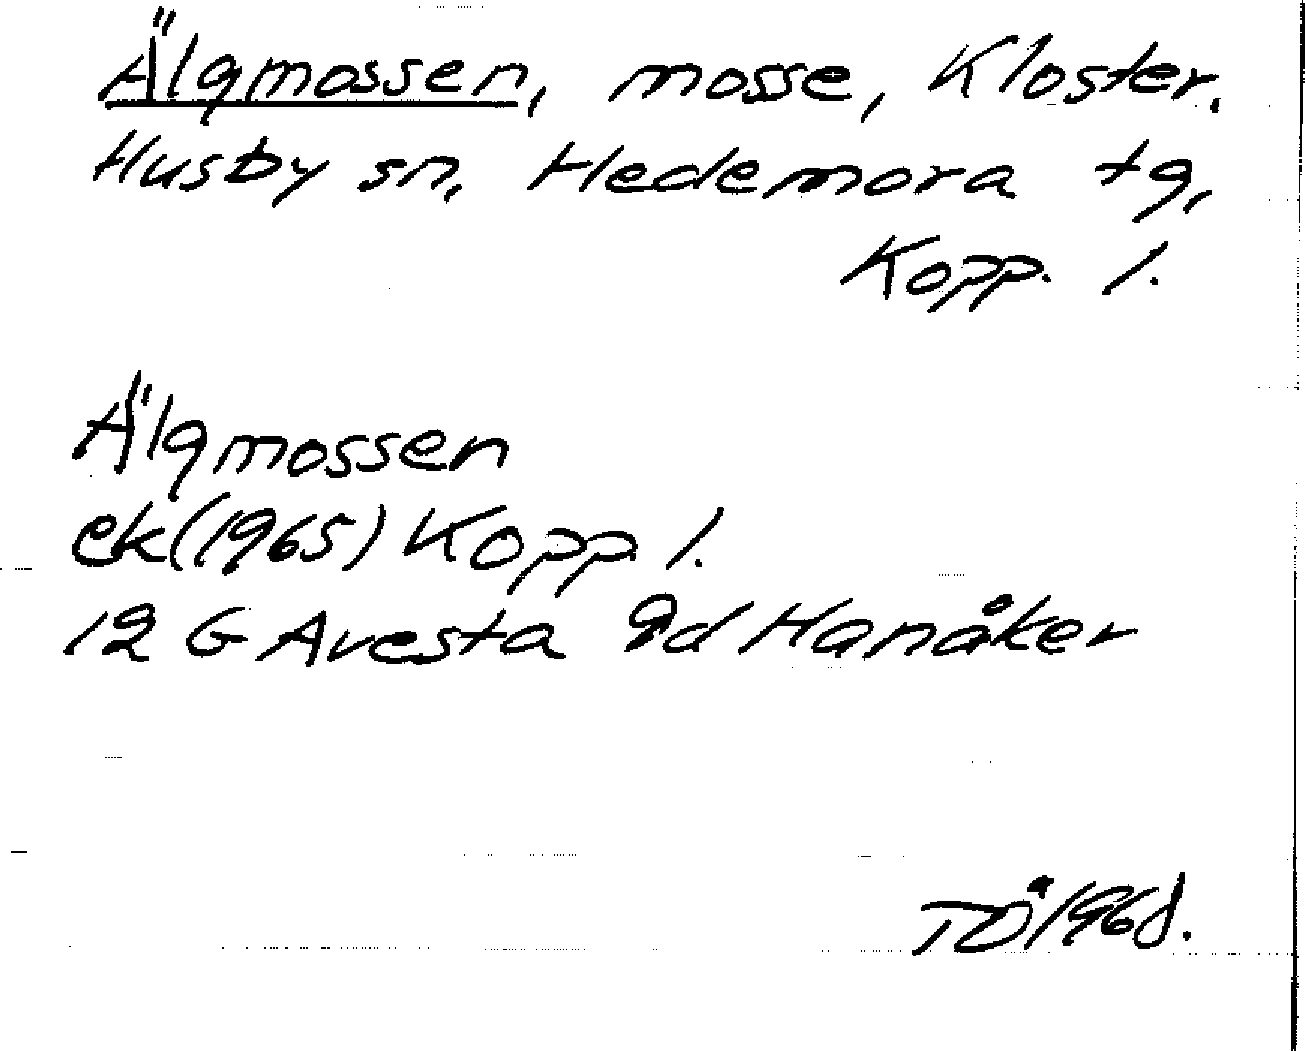 Älgmossen, mosse, Kloster.
Husby sn, Hedemora tg,
Kopp. l.
Älgmossen
ek(1965) Kopp l.
12 G Avesta 9d Hanåker
TÖ 1968.